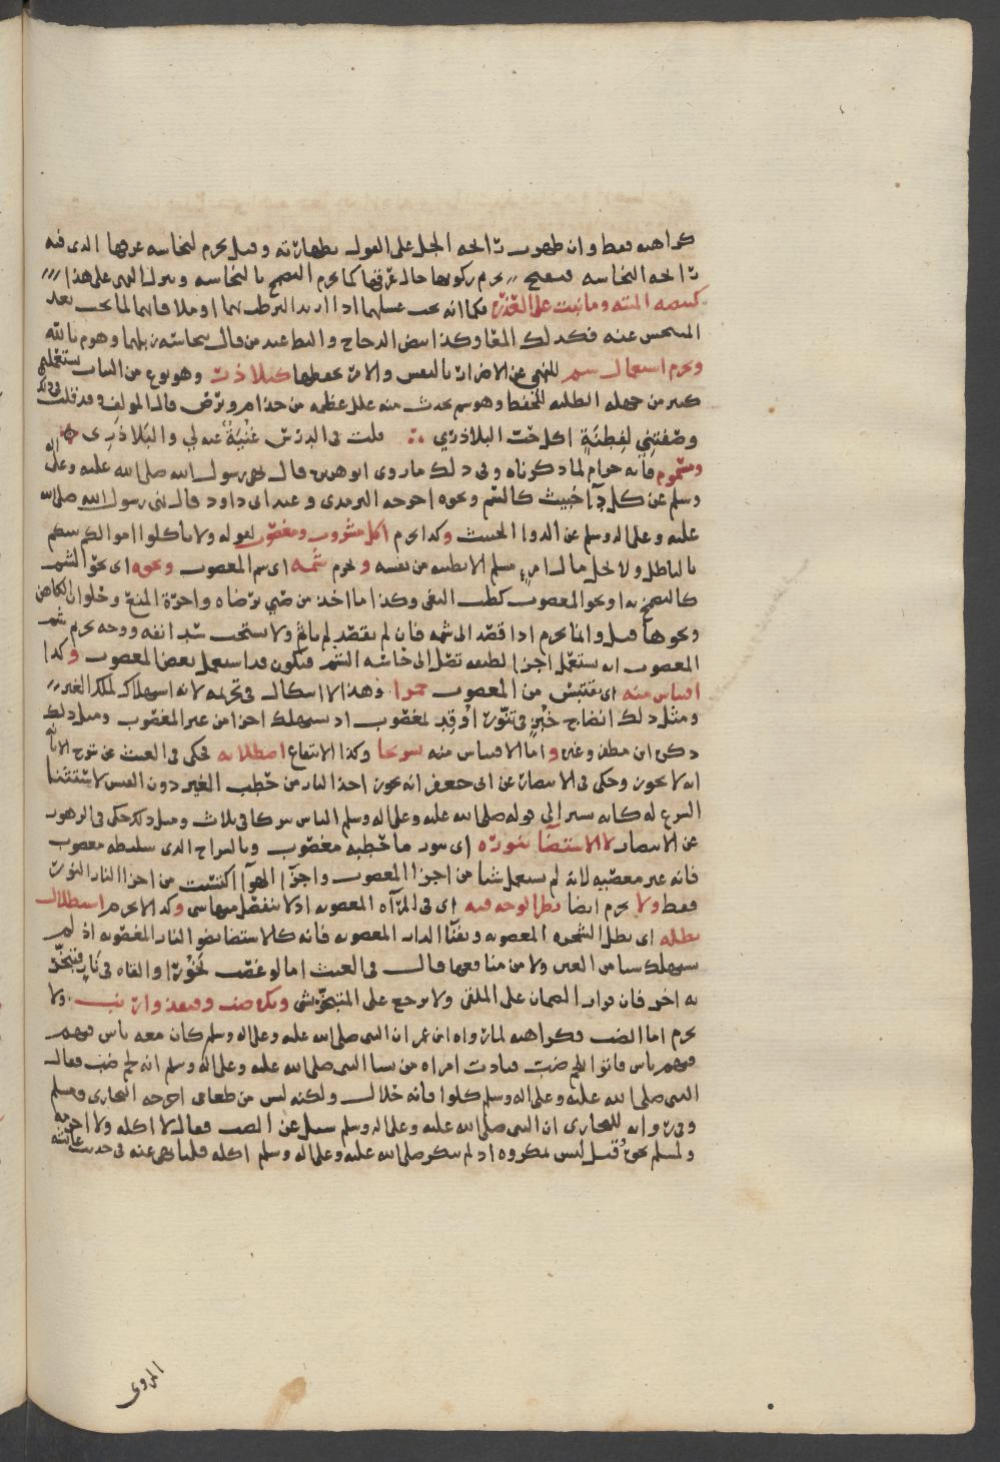 كراهته فقط وان ظهرت رائحة الجل على القول بطهارته وقيل يحرم لنجاسة عرقها الذي فيه
رائحة النجاسة فيحرم ركوبها حال عرقها كما يحرم التضمخ بالنجاسة على هذا
كبيضه الميته وما نبت على العذره فكما انه يجب غسلهما اذا اريد الترطب بهما او ملاقاتهما لما يجب بعد
ويحرم استعمال سم للنهي عن الاضرار بالنفس والا من يحفظها كبلاذر وهو نوع من النبات يستعمله
كثير من جهلة الطلبه للحفظ وهو سم يحدث منه علل عظيمه من جذام وبرص قال المولف وقد قلت في ذلك
وصفتني لفطنة اكل حب البلاذري قلت في الدرس غنية عنه لي والبلا ذري
ومشموم فانه حرام لما ذكرناه وفي ذلك ما روى ابو هريره قال نهى رسول الله صلى الله عليه وعلى اله
وسلم عن كل دوا خبيث كالسم ونحوه اخرجه الترمذي وعند ابي داود قال نهى رسول الله صلى الله
عليه وعلى اله وسلم عن الدوا الخبيث وكذا يحرم اكل مشروب ومغصوب لقوله ولا تاكلوا اموالكم بينكم
بالباطل ولا يحل مال امرئ مسلم الا بطيبه من نفسه ويحرم شمه اي شم المغصوب ونحوه اي نحو الشم
كالتضمخ به او نحو المغصوب كطيب البغي وكذا ما اخذ من صبي برضاه واجرة المنع وحلوان الكاهن
ونحوها قيل وانما يحرم اذا قصد الى شمه فان لم يقصد لم ياثم ولا يستحب شد انفه ووجه تحريم شم
المغصوب انه يستعمل اجزا لطيفه تصل الى حاسة الشم فيكون قد استعمل بعض المغصوب وكذا
اقتباس منه اي يقتبس من المغصوب جمرا وهذا لا اشكال في تحريمه لانه استهلاك لملك الغير
ومثل ذلك انضاج خبز في تنور اوقد بمغصوب اذ يستهلك اجزا من عين المغصوب ومثل ذلك
ذكره ابن مظفر وغيره واما الاقتباس منه سرجا وكذا الانتفاع اصطلا به فحكى في الغيث عن شرح الابانه
انه لا يجوز وحكى في الانتصار عن ابي جعفر انه يجوز اخذ النار من حطب الغير دون القبس لاستثنا
الشرع له كانه يشير الى قوله صلى الله عليه وعلى اله وسلم الناس شركا في ثلاث ومثل ذلك حكى في الزهور
عن الانتصار لا الاستضآ بنوره اي بنور ما حطبه مغصوب وبالسراج الذي سليطه مغصوب
فانه غير معصيه لانه لم يستعمل شيا من اجزا المغصوب واجزآ الهوآ اكتست من اجزا النار النور
فقط ولا يحرم ايضا نظر الوجه فيه اي في المرآه المغصوبه اذ لا ينفصل منها شي وكذا لا يحرم استظلال
بظله اي بظل الشجره المغصوبه وبفنآ الدار المغصوبه فانه كالاستضا بضو النار المغصوبه اذ لم
يستهلك شيا من العين ولا من منافعها قال في الغيث اما لو غصب بخورا والقاه في نار فتبخر
به اخر فان قرار الضمان على الملقي ولا يرجع على المتبخر بشي ويكره ضب وقنفذ وارنب ولا
يحرم اما الضب فكراهته لما رواه ابن عمر ان النبي صلى الله عليه وعلى اله وسلم كان معه ناس فيهم
فاتوا بلحم ضب فنادت امراه من نسا النبي صلى الله عليه وعلى اله وسلم انه لحم ضب فقال
النبي صلى الله عليه وعلى اله وسلم كلوا فانه حلال ولكنه ليس من طعامي اخرجه البخاري ومسلم
وفي روايه للبخاري ان النبي صلى الله عليه وعلى اله وسلم سئل عن الضب فقال لا اكله ولا احرمه
ولمسلم نحوه وقيل ليس بمكروه اذ لم ينكر صلى الله عليه وعلى اله وسلم اكله قلنا نهى عنه في حديث عائشه
المروى